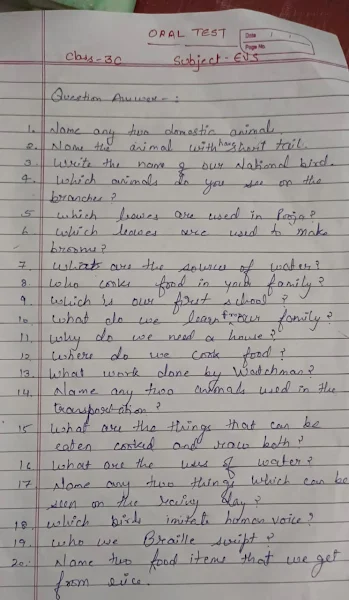 ORAL TEST
Date
Page No.
Class - 3C Subject - EVS
Question Answer - :
1. Name any two domestic animal.
2. Name the animal with has short tail.
3 Write the name of our National bird.
4. Which animals do you see on the
branches?
5 which leaves are used in Pooja?
6 which leaves are used to make
brooms?
7 What are the source of water?
8 who cooks food in your family?
9 which is our first school?
10 what do we learn from our family?
11 why do we need a house?
12 where do we cook food?
13 what work done by Watchman?
14. Name any two animals used in the
transportation?
15 what are the things that can be
eaten cooked and raw both?
16 what are the uses of water?
17 Name any two things which can be
seen on the rainy day?
18. which birds imitate human voice?
19. who we Braille script?
20. Name two food items that we get
from rice.